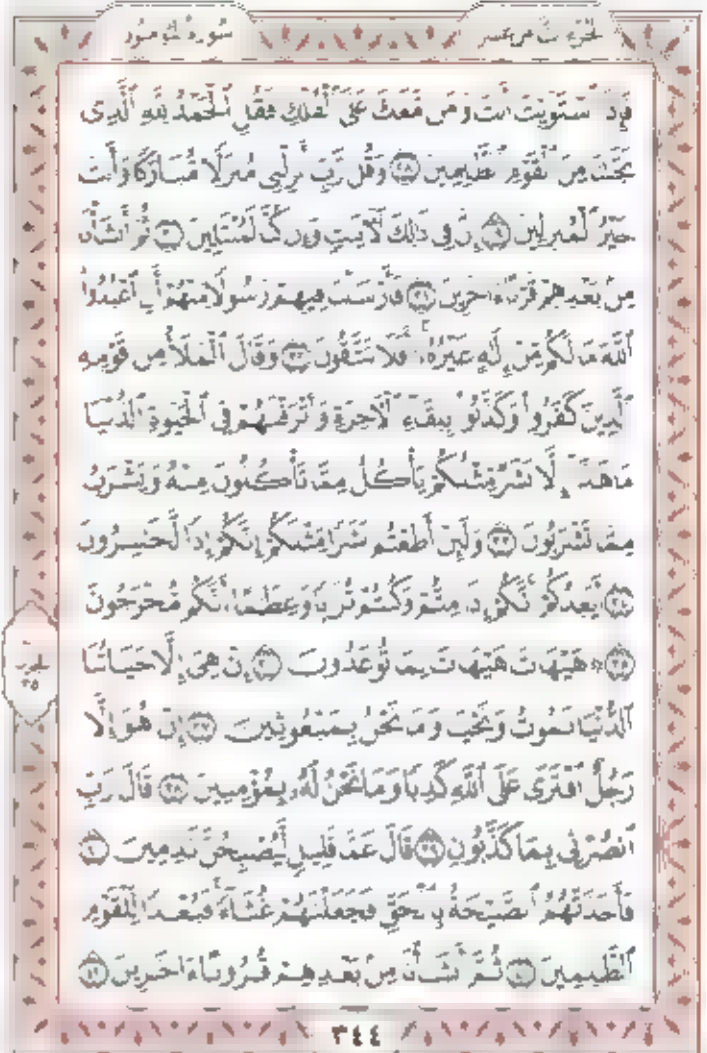 الجزء الثامن عشر سورة المؤمنون
فَإِذَا ٱسْتَوَيْتَ أَنتَ وَمَن مَّعَكَ عَلَى ٱلْفُلْكِ فَقُلِ ٱلْحَمْدُ لِلَّهِ ٱلَّذِى
نَجَّىٰنَا مِنَ ٱلْقَوْمِ ٱلظَّٰلِمِينَ ٢٨ وَقُل رَّبِّ أَنزِلْنِى مُنزَلًا مُّبَارَكًا وَأَنتَ
خَيْرُ ٱلْمُنزِلِينَ ٢٩ إِنَّ فِى ذَٰلِكَ لَءَايَٰتٍ وَإِن كُنَّا لَمُبْتَلِينَ ٣٠ ثُمَّ أَنشَأْنَا
مِنۢ بَعْدِهِمْ قَرْنًا ءَاخَرِينَ ٣١ فَأَرْسَلْنَا فِيهِمْ رَسُولًا مِّنْهُمْ أَنِ ٱعْبُدُوا۟
ٱللَّهَ مَا لَكُم مِّنْ إِلَٰهٍ غَيْرُهُۥٓ أَفَلَا تَتَّقُونَ ٣٢ وَقَالَ ٱلْمَلَأُ مِن قَوْمِهِ
ٱلَّذِينَ كَفَرُوا۟ وَكَذَّبُوا۟ بِلِقَآءِ ٱلْءَاخِرَةِ وَأَتْرَفْنَٰهُمْ فِى ٱلْحَيَوٰةِ ٱلدُّنْيَا
مَا هَٰذَآ إِلَّا بَشَرٌ مِّثْلُكُمْ يَأْكُلُ مِمَّا تَأْكُلُونَ مِنْهُ وَيَشْرَبُ
مِمَّا تَشْرَبُونَ ٣٣ وَلَئِنْ أَطَعْتُم بَشَرًا مِّثْلَكُمْ إِنَّكُمْ إِذًا لَّخَٰسِرُونَ
٣٤ أَيَعِدُكُمْ أَنَّكُمْ إِذَا مِتُّمْ وَكُنتُمْ تُرَابًا وَعِظَٰمًا أَنَّكُم مُّخْرَجُونَ
٣٥ ۞ هَيْهَاتَ هَيْهَاتَ لِمَا تُوعَدُونَ ٣٦ إِنْ هِىَ إِلَّا حَيَاتُنَا
ٱلدُّنْيَا نَمُوتُ وَنَحْيَا وَمَا نَحْنُ بِمَبْعُوثِينَ ٣٧ إِنْ هُوَ إِلَّا
رَجُلٌ ٱفْتَرَىٰ عَلَى ٱللَّهِ كَذِبًا وَمَا نَحْنُ لَهُۥ بِمُؤْمِنِينَ ٣٨ قَالَ رَبِّ
ٱنصُرْنِى بِمَا كَذَّبُونِ ٣٩ قَالَ عَمَّا قَلِيلٍ لَّيُصْبِحُنَّ نَٰدِمِينَ ٤٠
فَأَخَذَتْهُمُ ٱلصَّيْحَةُ بِٱلْحَقِّ فَجَعَلْنَٰهُمْ غُثَآءً فَبُعْدًا لِّلْقَوْمِ
ٱلظَّٰلِمِينَ ٤١ ثُمَّ أَنشَأْنَا مِنۢ بَعْدِهِمْ قُرُونًا ءَاخَرِينَ ٤٢
الحزب
٣٥
٣٤٤